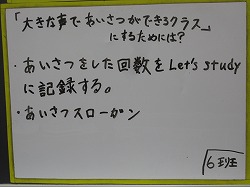 「大きな声であいさつができるクラス」
にするためには?
・あいさつをした回数をLet's study
に記録する。
・あいさつスローガン
6班